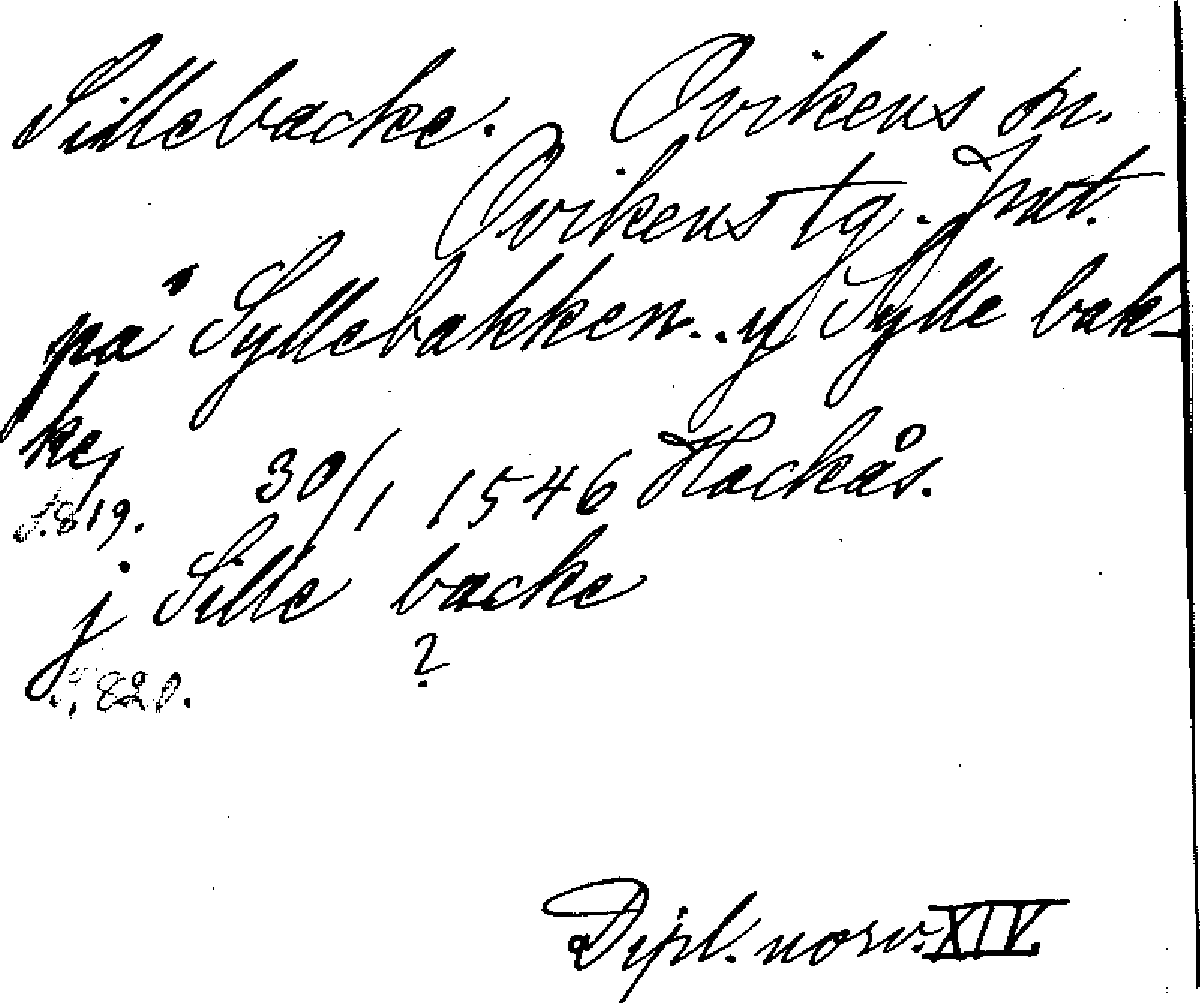 Sillebacke. Ovikens sn.
Ovikens tg. Jmt.
på Syllebakken. y Sylle bak-
ke,
s. 819. 30/1 1546 Hackås.
j Sille backe
?
s. 820.
Dipl. norv. XIV